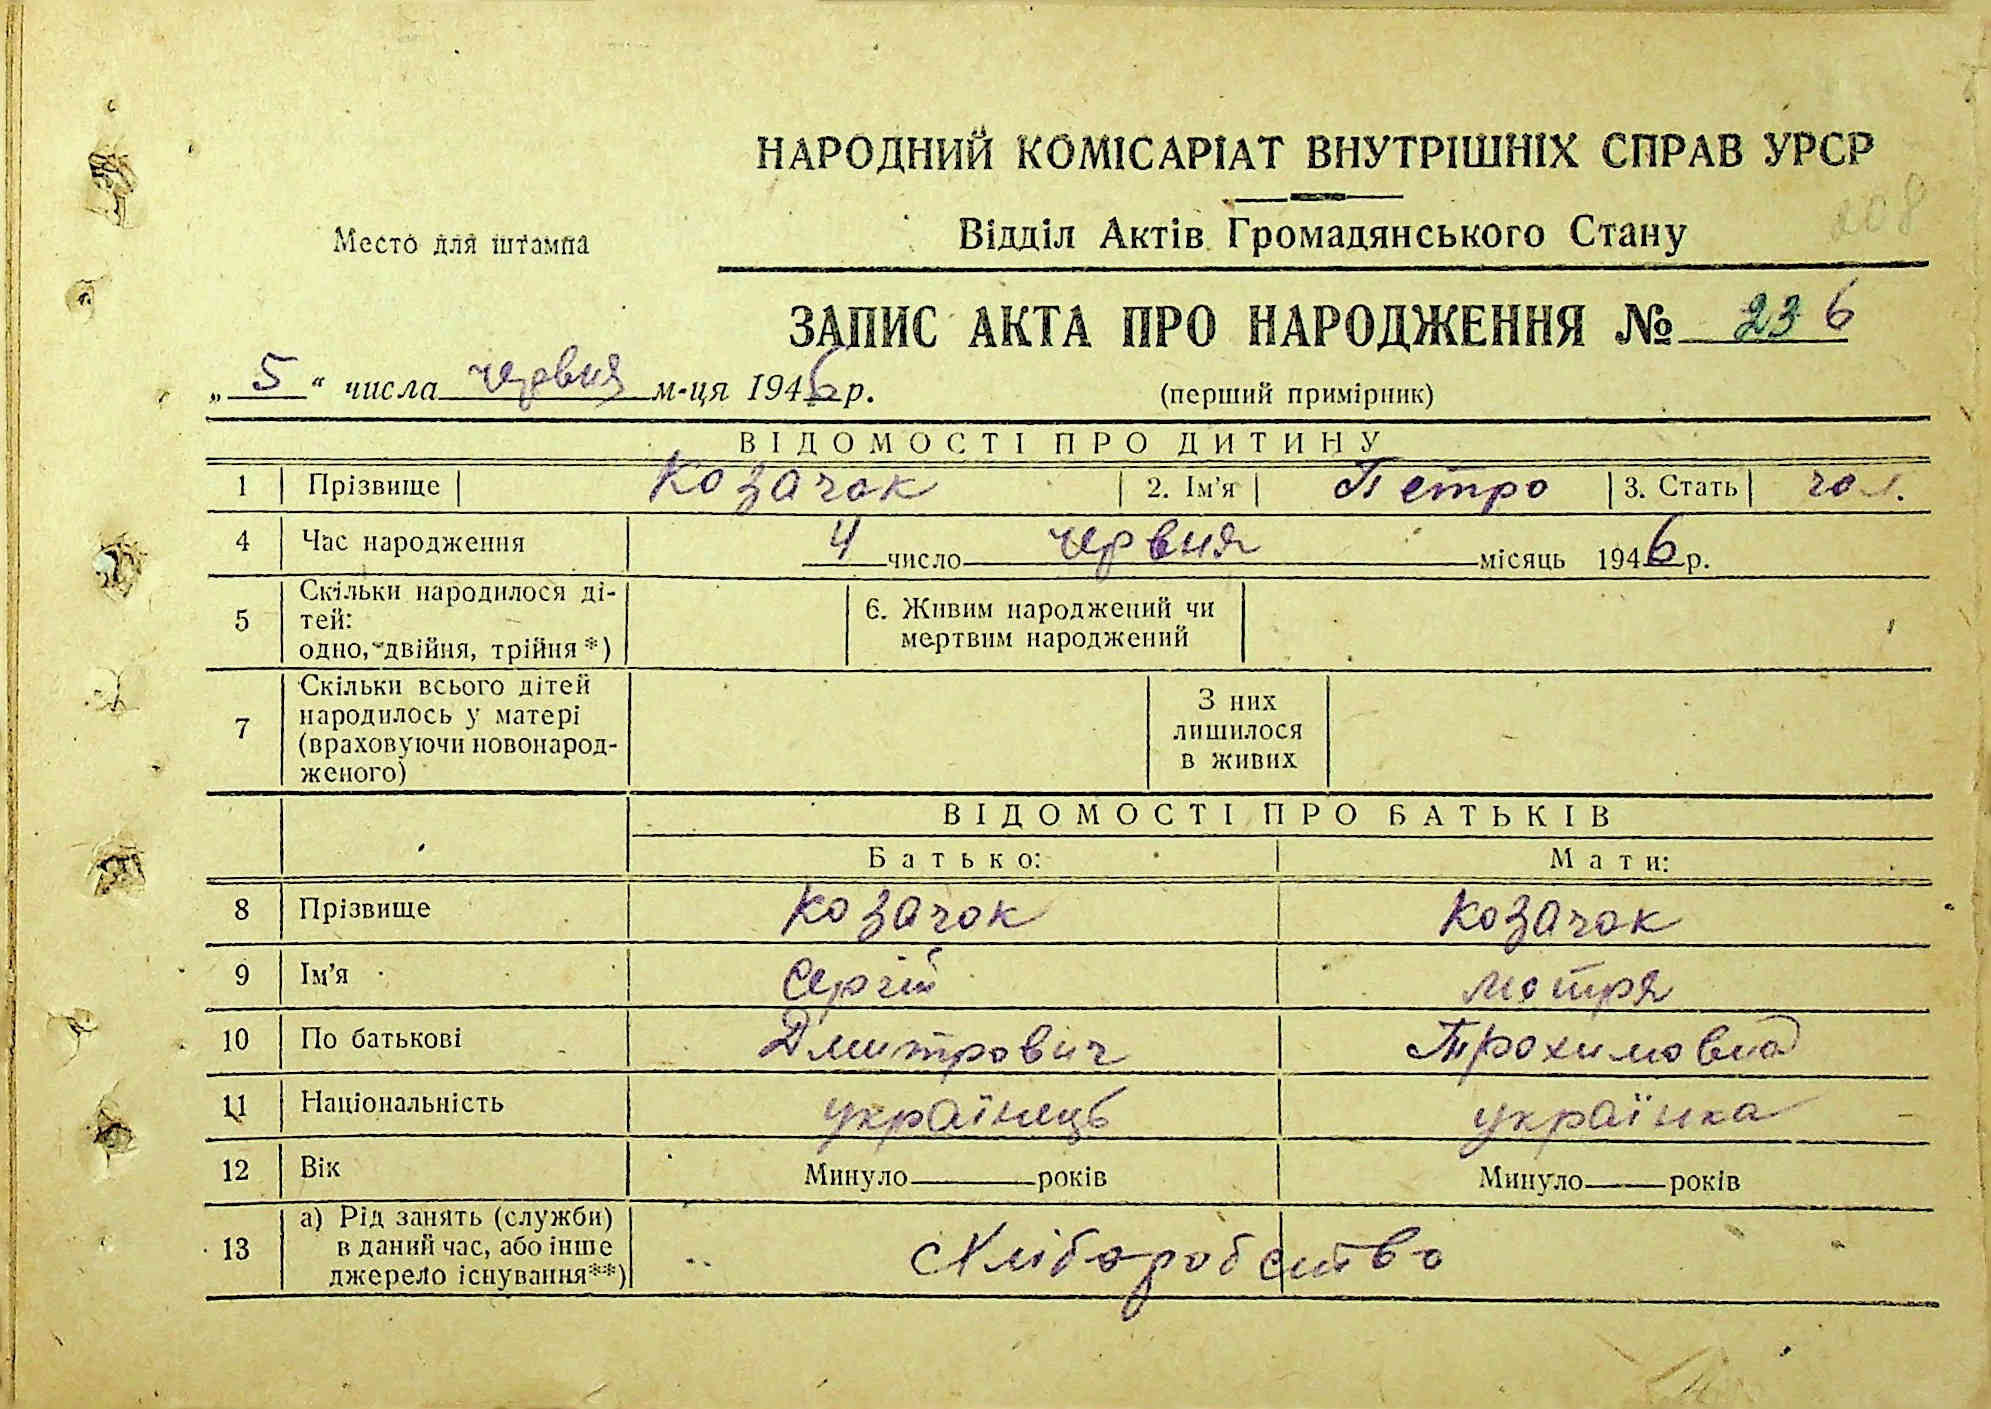 НАРОДНИЙ КОМІСАРІАТ ВНУТРІШНІХ СПРАВ УРСР
208
Место для штампа
Відділ Актів Громадянського Стану
ЗАПИС АКТА ПРО НАРОДЖЕННЯ № 236
„5“ числа червня м-ця 1946 р.
(перший примірник)
ВІДОМОСТІ ПРО ДИТИНУ
1 Прізвище Козачок 2. Ім'я Петро 3. Стать чол.
4 Час народження 4 число червня місяць 1946 р.
5 Скільки народилося ді-
тей:
одно, двійня, трійня *)
6. Живим народжений чи
мертвим народжений
7 Скільки всього дітей
народилось у матері
(враховуючи новонарод-
женого)
З них
лишилося
в живих
ВІДОМОСТІ ПРО БАТЬКІВ
Батько: Мати:
8 Прізвище Козачок Козачок
9 Ім'я Сергій Мотря
10 По батькові Дмитрович Трохимовна
11 Національність українець українка
12 Вік Минуло років Минуло років
13 а) Рід занять (служби)
в даний час, або інше
джерело існування**)
Хліборобство